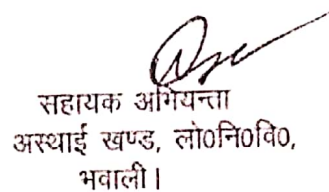 सहायक अभियन्ता
अस्थाई खण्ड, लो0नि0वि0,
भवाली।